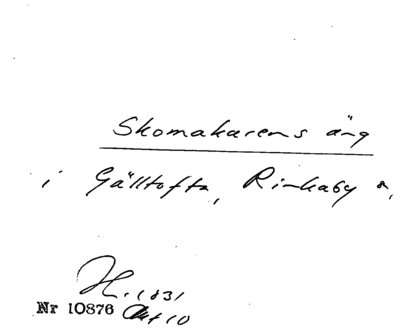 Skomakarens äng
i Gälltofta, Rinkaby s,
H. 1831
Nr 10876 Akt 10